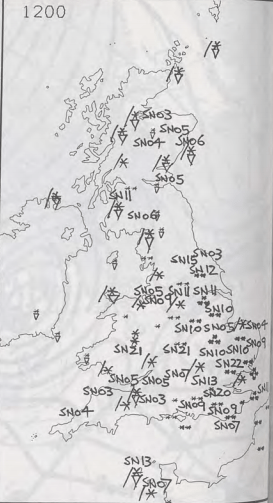 1200
SN03
SN05
SN04 SN06
SN05
SN11
SN06
SN03
SN15
SN12
SN05 SN11 SN11
SN09
SN10
SN10 SN05 SN04
SN09
SN21 SN21 SN10 SN10
SN22
SN05 SN05 SN07 SN13
SN03 SN03 SN20
SN04 SN09 SN09
SN07
SN13
SN07